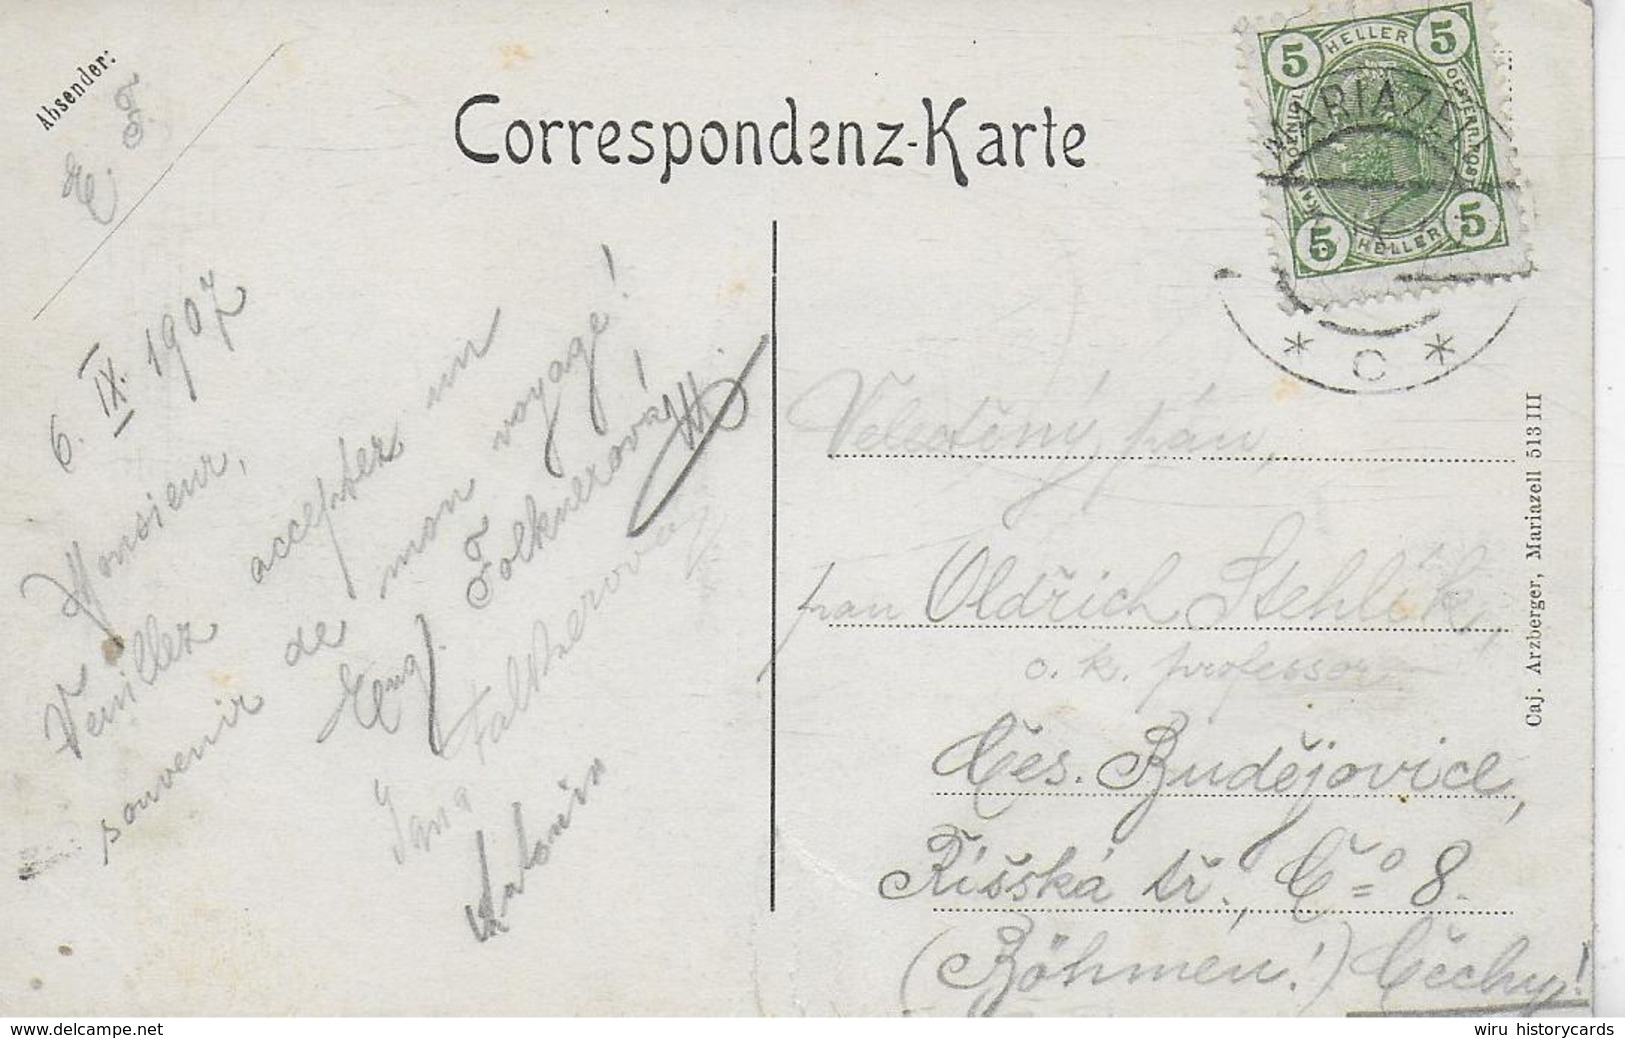 Absender:
E. F.
Correspondenz-Karte
5 HELLER 5
5 HELLER 5
MARIAZELL
* c *
6. IX. 1907
Monsieur,
Veuillez accepter un
souvenir de mon voyage!
Eug. Folknerová!
Jana
Antonín
Velectěný pán,
pan Oldřich Stehlík,
c. k. professor
Čes. Budějovice,
Říšská tř., Č=o 8.
(Böhmen!) Čechy!
Caj. Arzberger, Mariazell 513 III
www.delcampe.net
wiru historycards